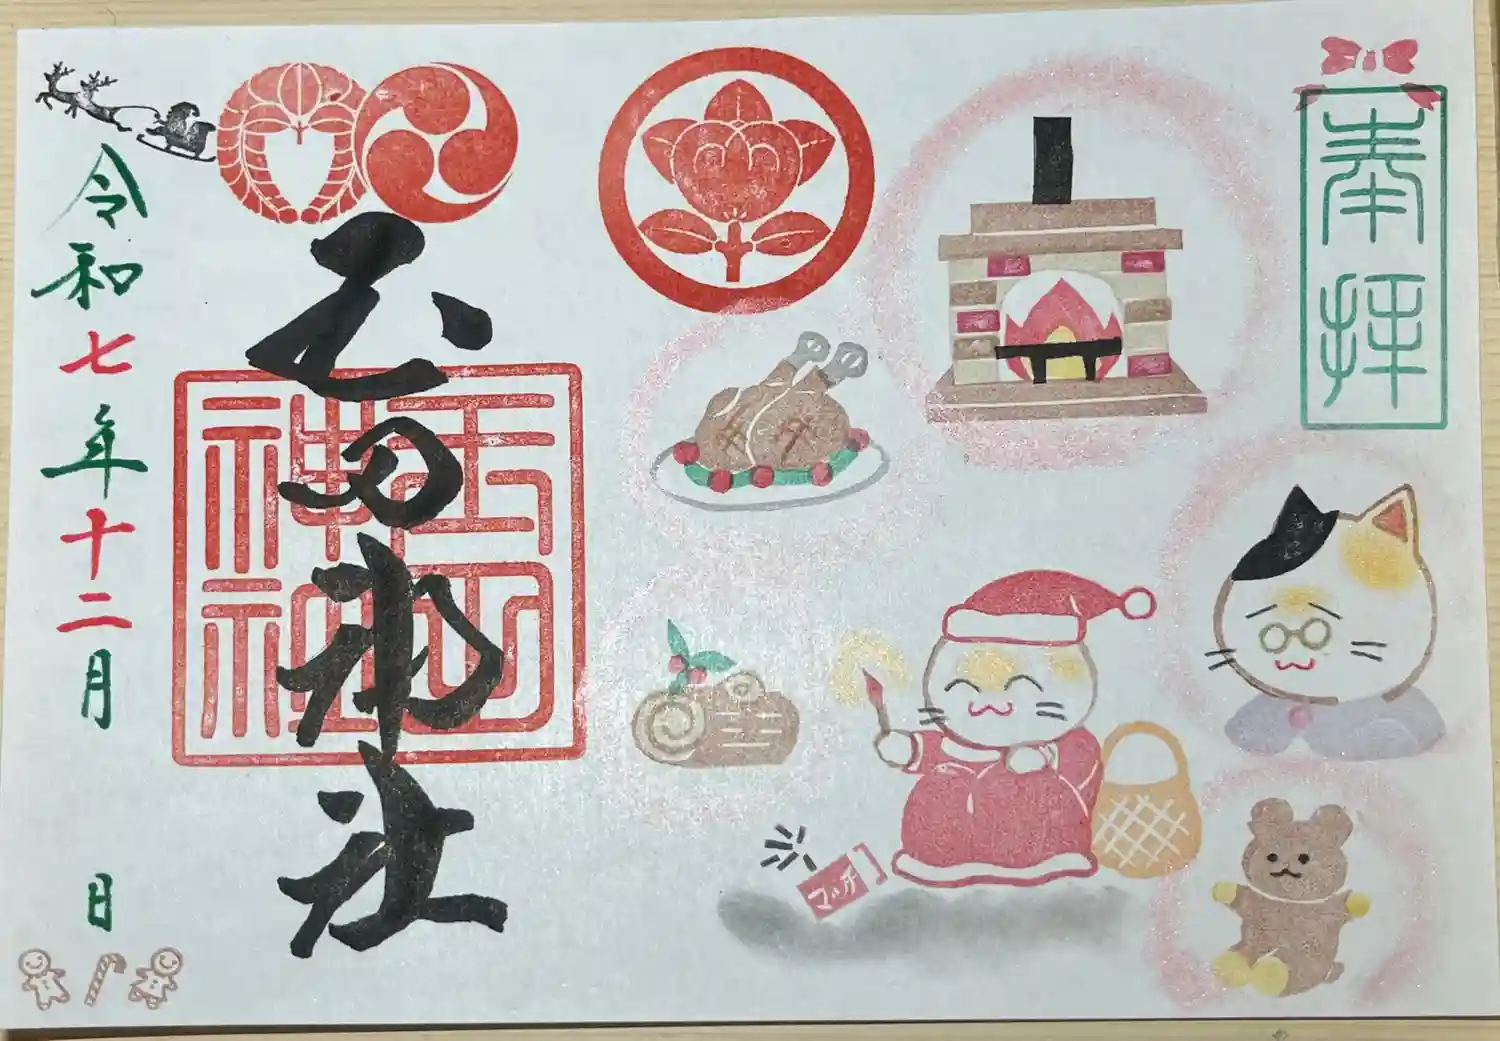 奉拝
マッチ
玉田神社
玉田
神社
令和七年十二月 日